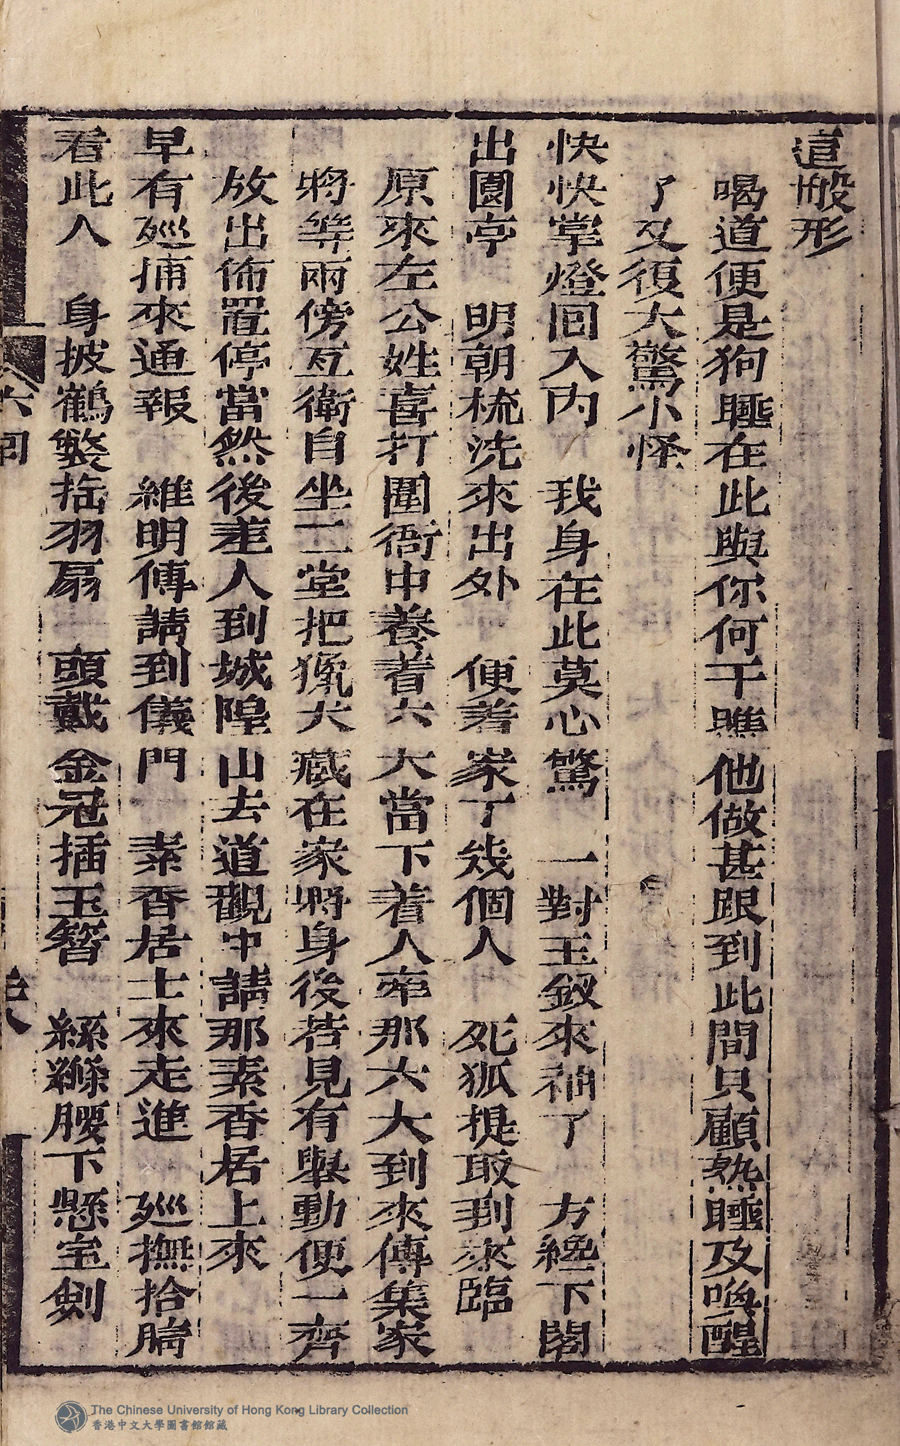 這般形
喝道便是狗睡在此與你何干瞧他做甚跟到此間只顧熟睡及喚醒
了又復大驚小怪
快快掌燈回入內 我身在此莫心驚 一對玉釵來袖了 方纔下閣
出園亭 明朝梳洗來出外 便着家丁幾個人 死狐提取到來臨
原來左公姓喜打圍衙中養着六犬當下着人牽那六犬到來傳集家
將等兩傍互衛自坐二堂把獵犬藏在家將身後若見有舉動便一齊
放出佈置停當然後差人到城隍山去道觀中請那素香居士來
早有廵捕來通報 維明傳請到儀門 素香居士來走進 廵撫拾腦
看此人 身披鶴氅搖羽扇 頭戴金冠插玉簪 絲縧腰下懸宝劍
六回
The Chinese University of Hong Kong Library Collection
香港中文大學圖書館館藏